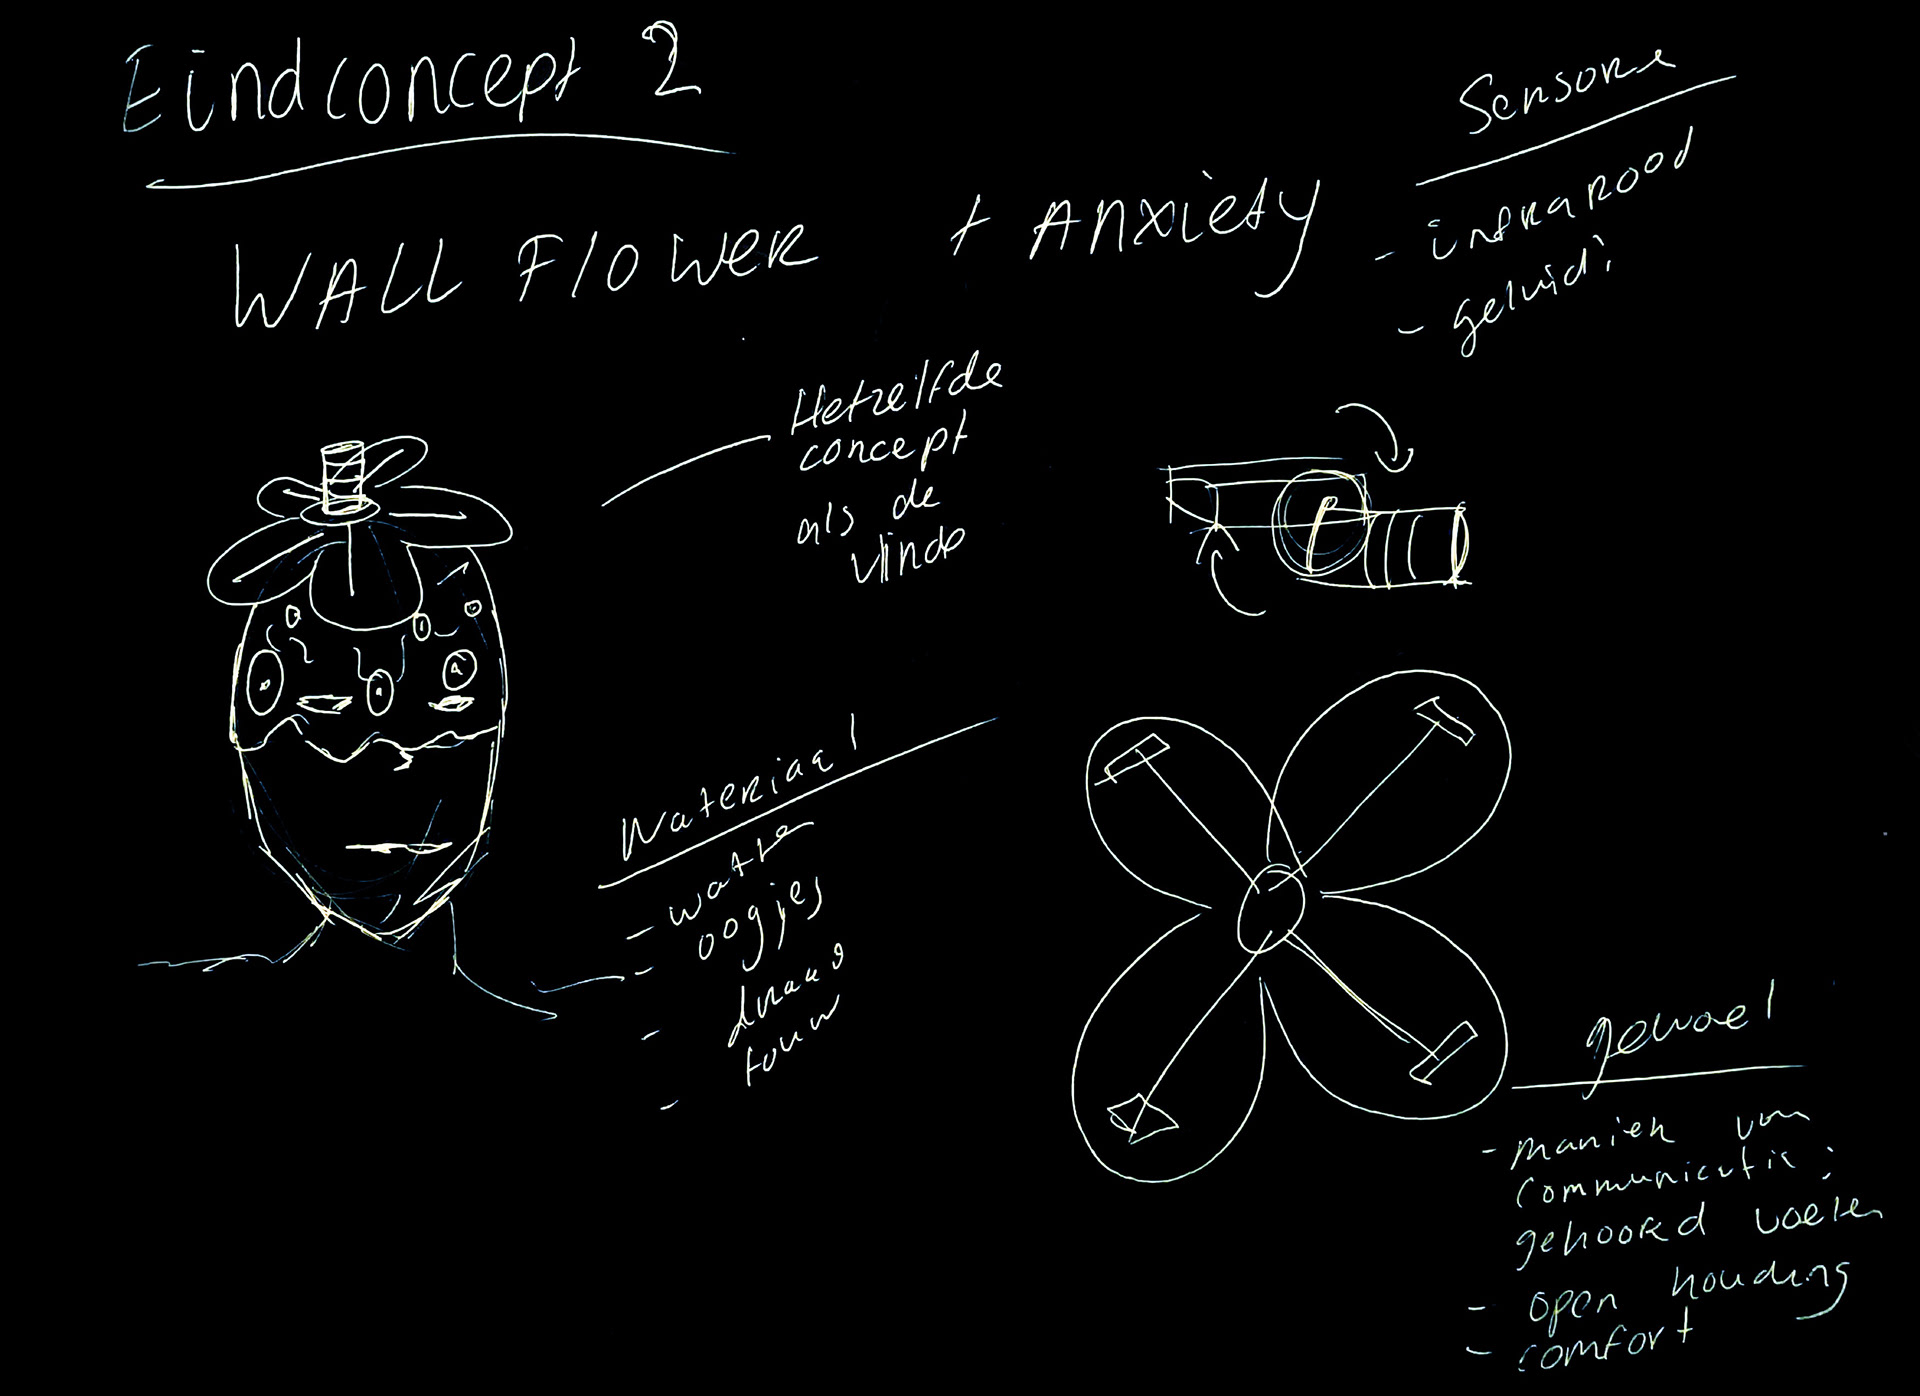 Eindconcept 2
WALL FlOWER + Anxiety
Sensore
- infrarood
- geluid;
Hetzelfde
concept
als de
Vlinde
Materiaal
- watte
oogjes
- draad
- touw
-
gevoel
- manier van
communicatie;
gehoord voelen
- open houding
- comfort